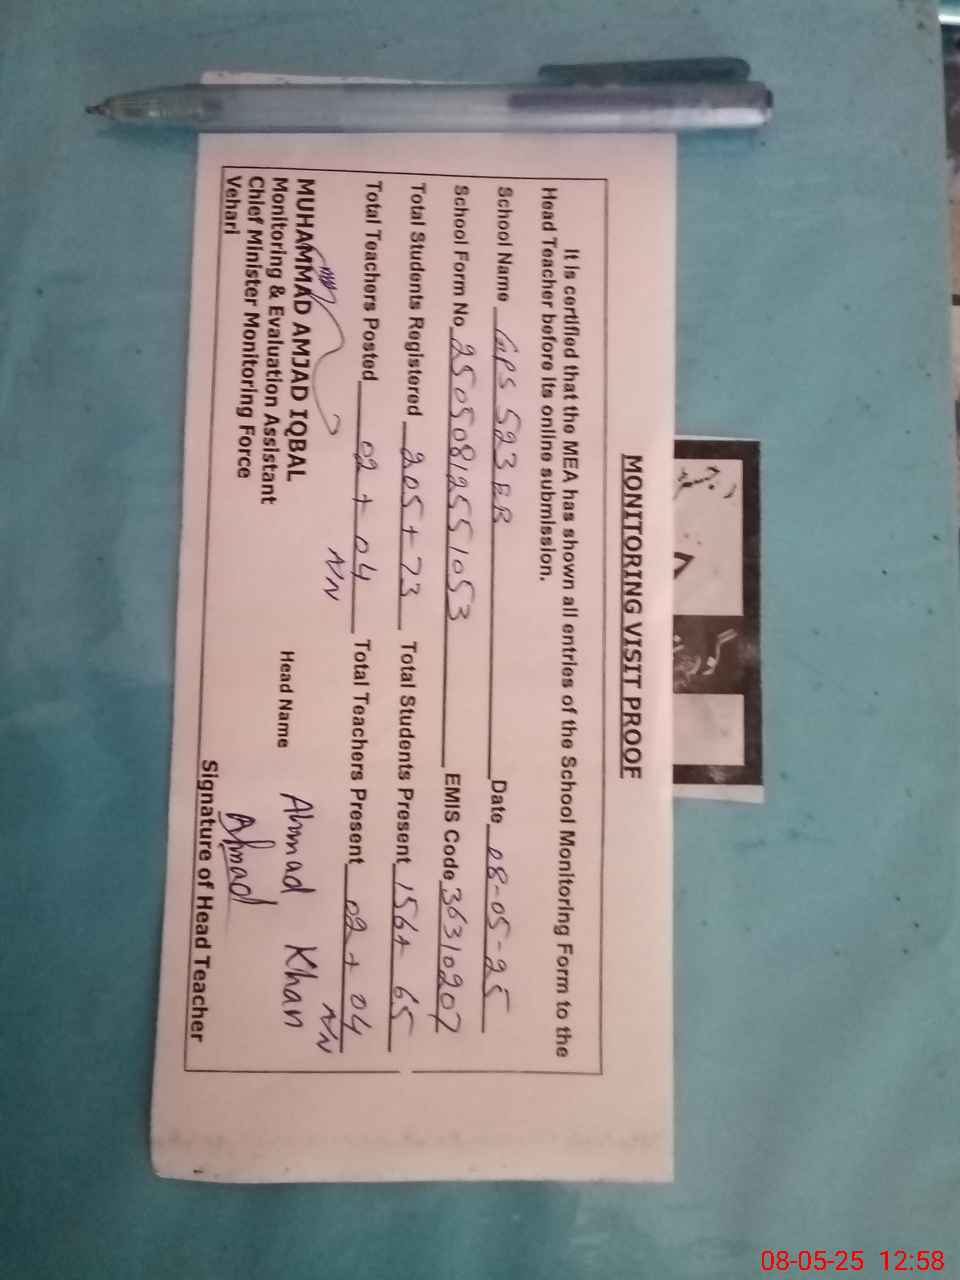 MONITORING VISIT PROOF
It is certified that the MEA has shown all entries of the School Monitoring Form to the
Head Teacher before its online submission.
School Name GPS 523 EB Date 08-05-25
School Form No 25050812551053 EMIS Code 36310207
Total Students Registered 205 + 73 Total Students Present 156 + 65
Total Teachers Posted 02 + 04 Total Teachers Present 02 + 04
MUHAMMAD AMJAD IQBAL
Monitoring & Evaluation Assistant
Chief Minister Monitoring Force
Vehari
Head Name Ahmad Khan
Ahmad
Signature of Head Teacher
08-05-25 12:58